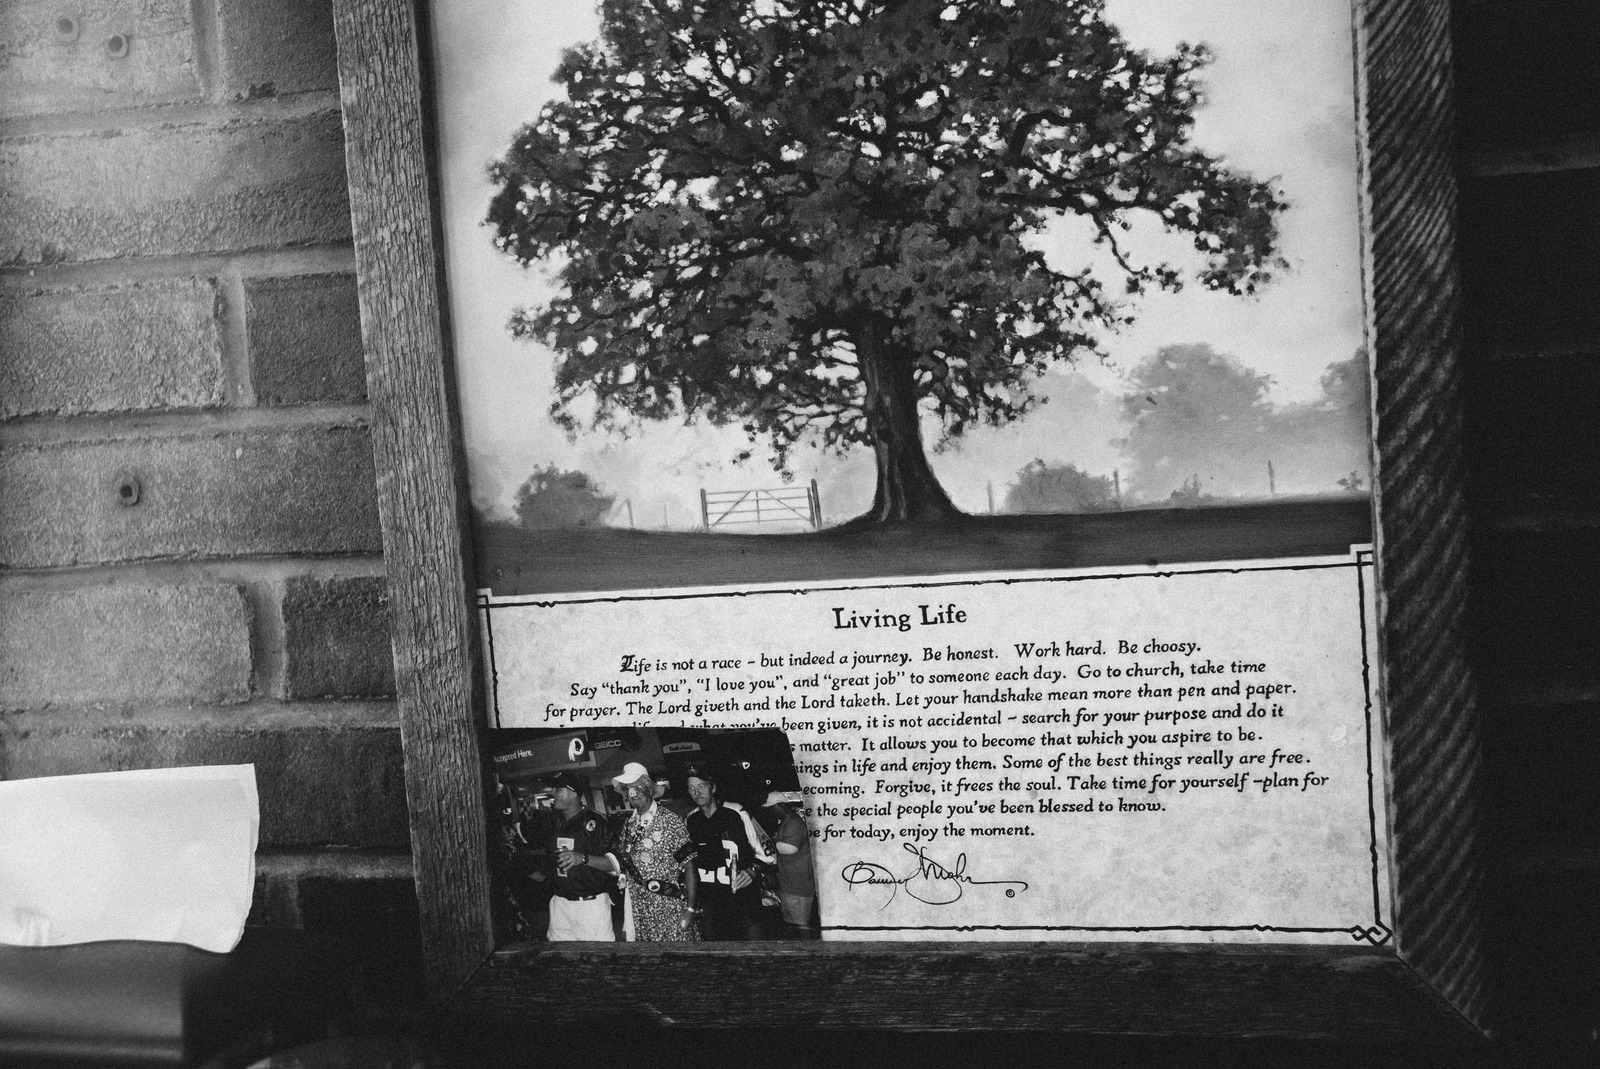 Living Life
Life is not a race - but indeed a journey. Be honest. Work hard. Be choosy.
Say "thank you", "I love you", and "great job" to someone each day. Go to church, take time
for prayer. The Lord giveth and the Lord taketh. Let your handshake mean more than pen and paper.
life and what you've been given, it is not accidental - search for your purpose and do it
matter. It allows you to become that which you aspire to be.
in life and enjoy them. Some of the best things really are free.
Forgive, it frees the soul. Take time for yourself -plan for
the special people you've been blessed to know.
for today, enjoy the moment.
©
Accepted Here.
GEICO
FedExField